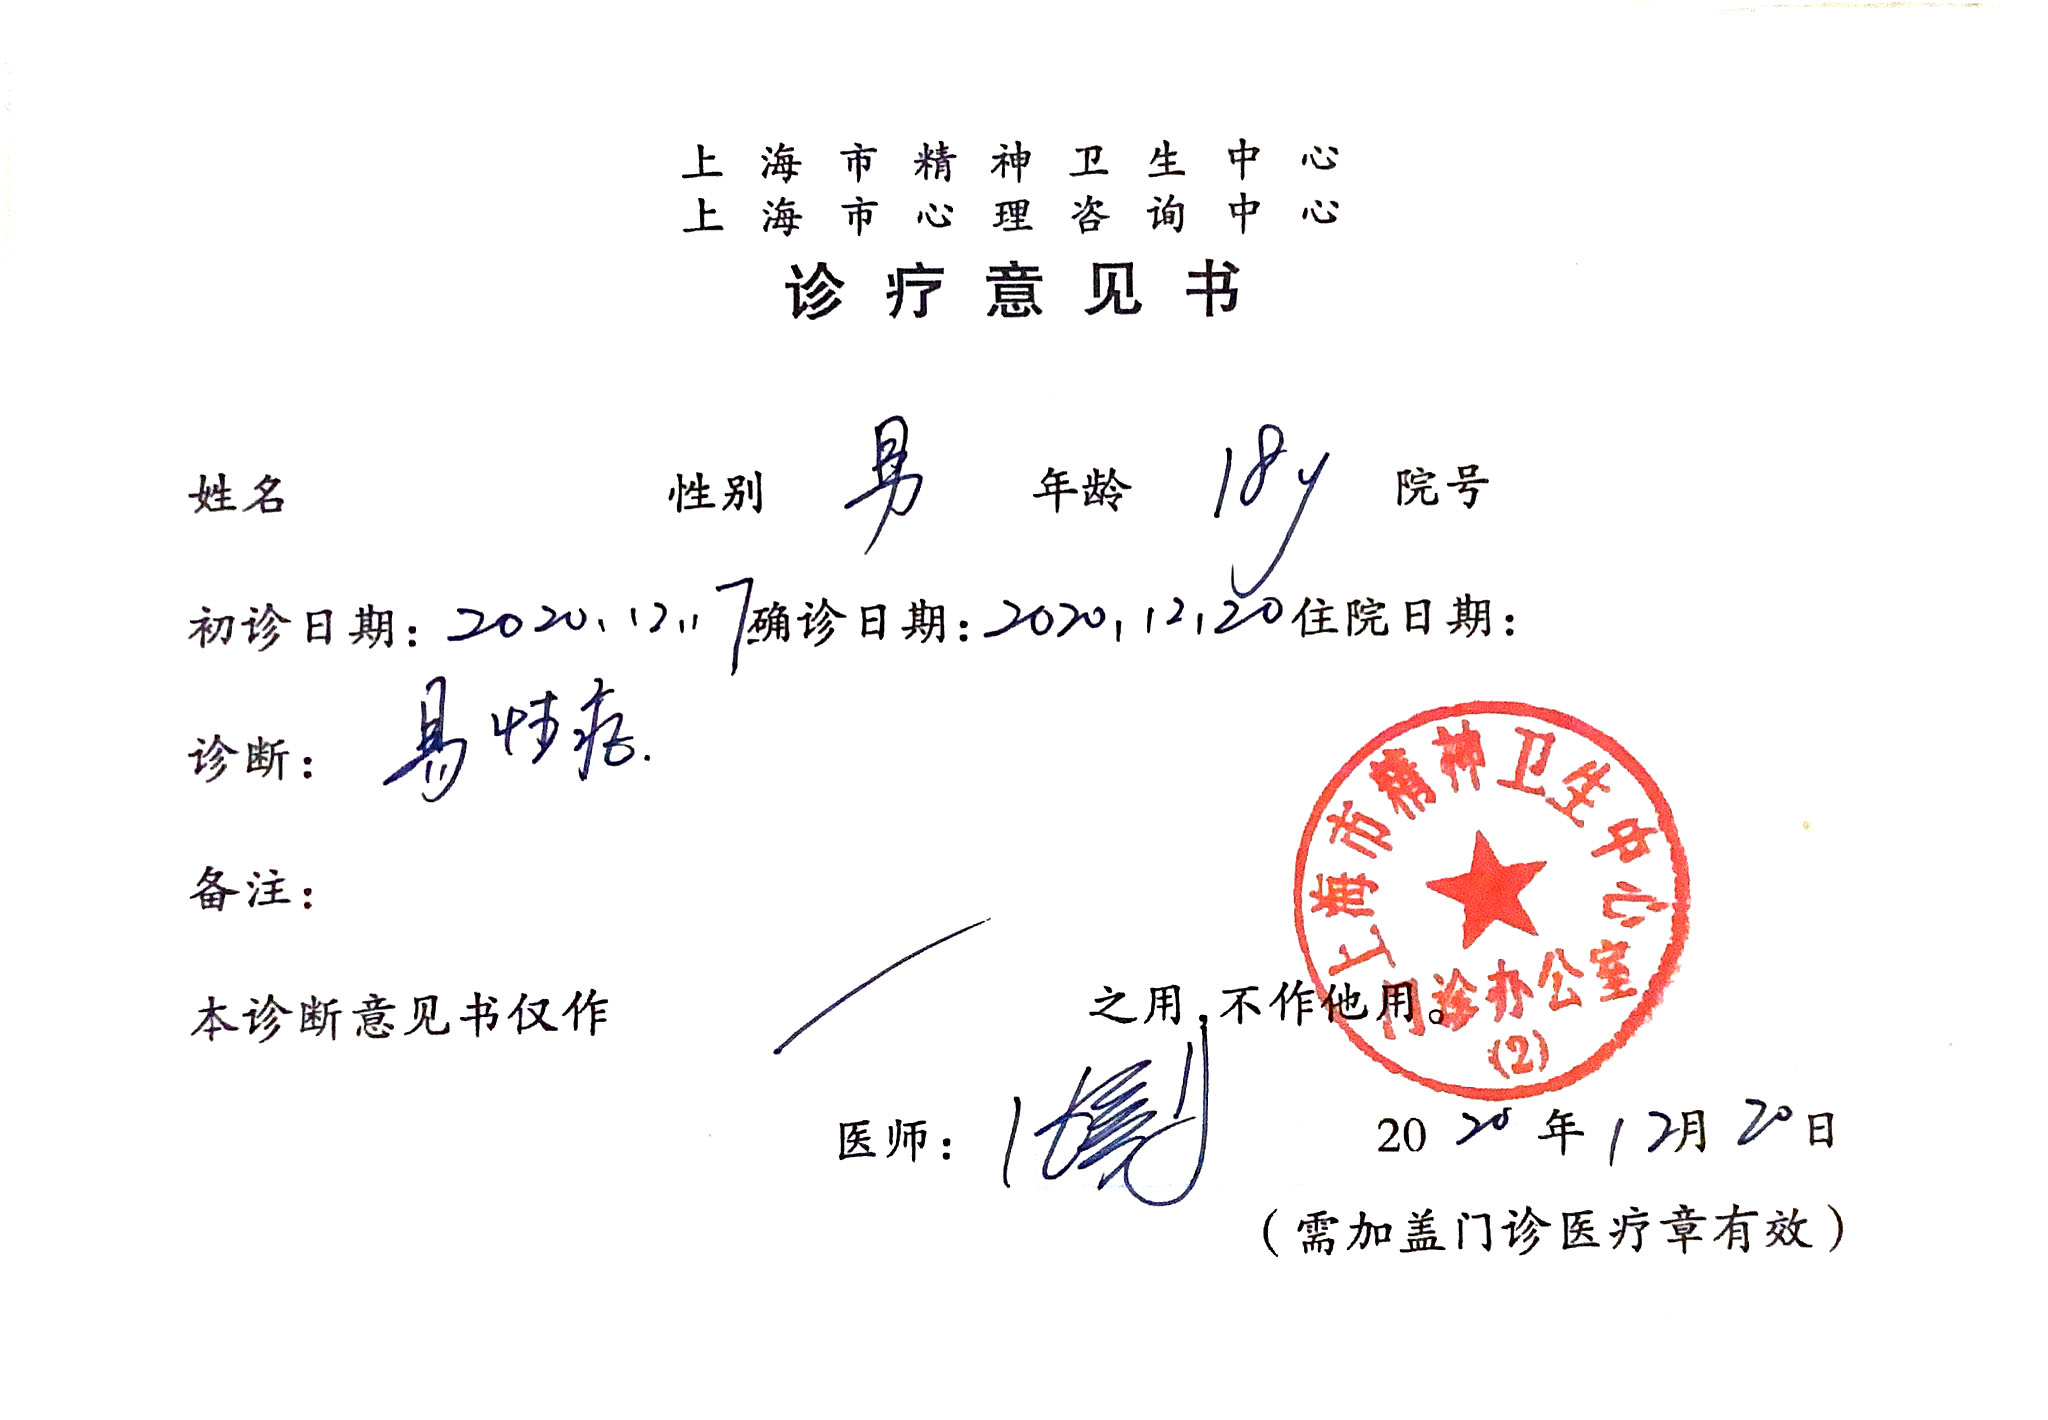 上海市精神卫生中心
上海市心理咨询中心
诊疗意见书
姓名 性别 男 年龄 18y 院号
初诊日期：2020.12.17 确诊日期：2020.12.20 住院日期：
诊断：易性症.
备注：
本诊断意见书仅作 之用，不作他用。
上海市精神卫生中心
门诊办公室
(2)
医师： 2020年12月20日
（需加盖门诊医疗章有效）